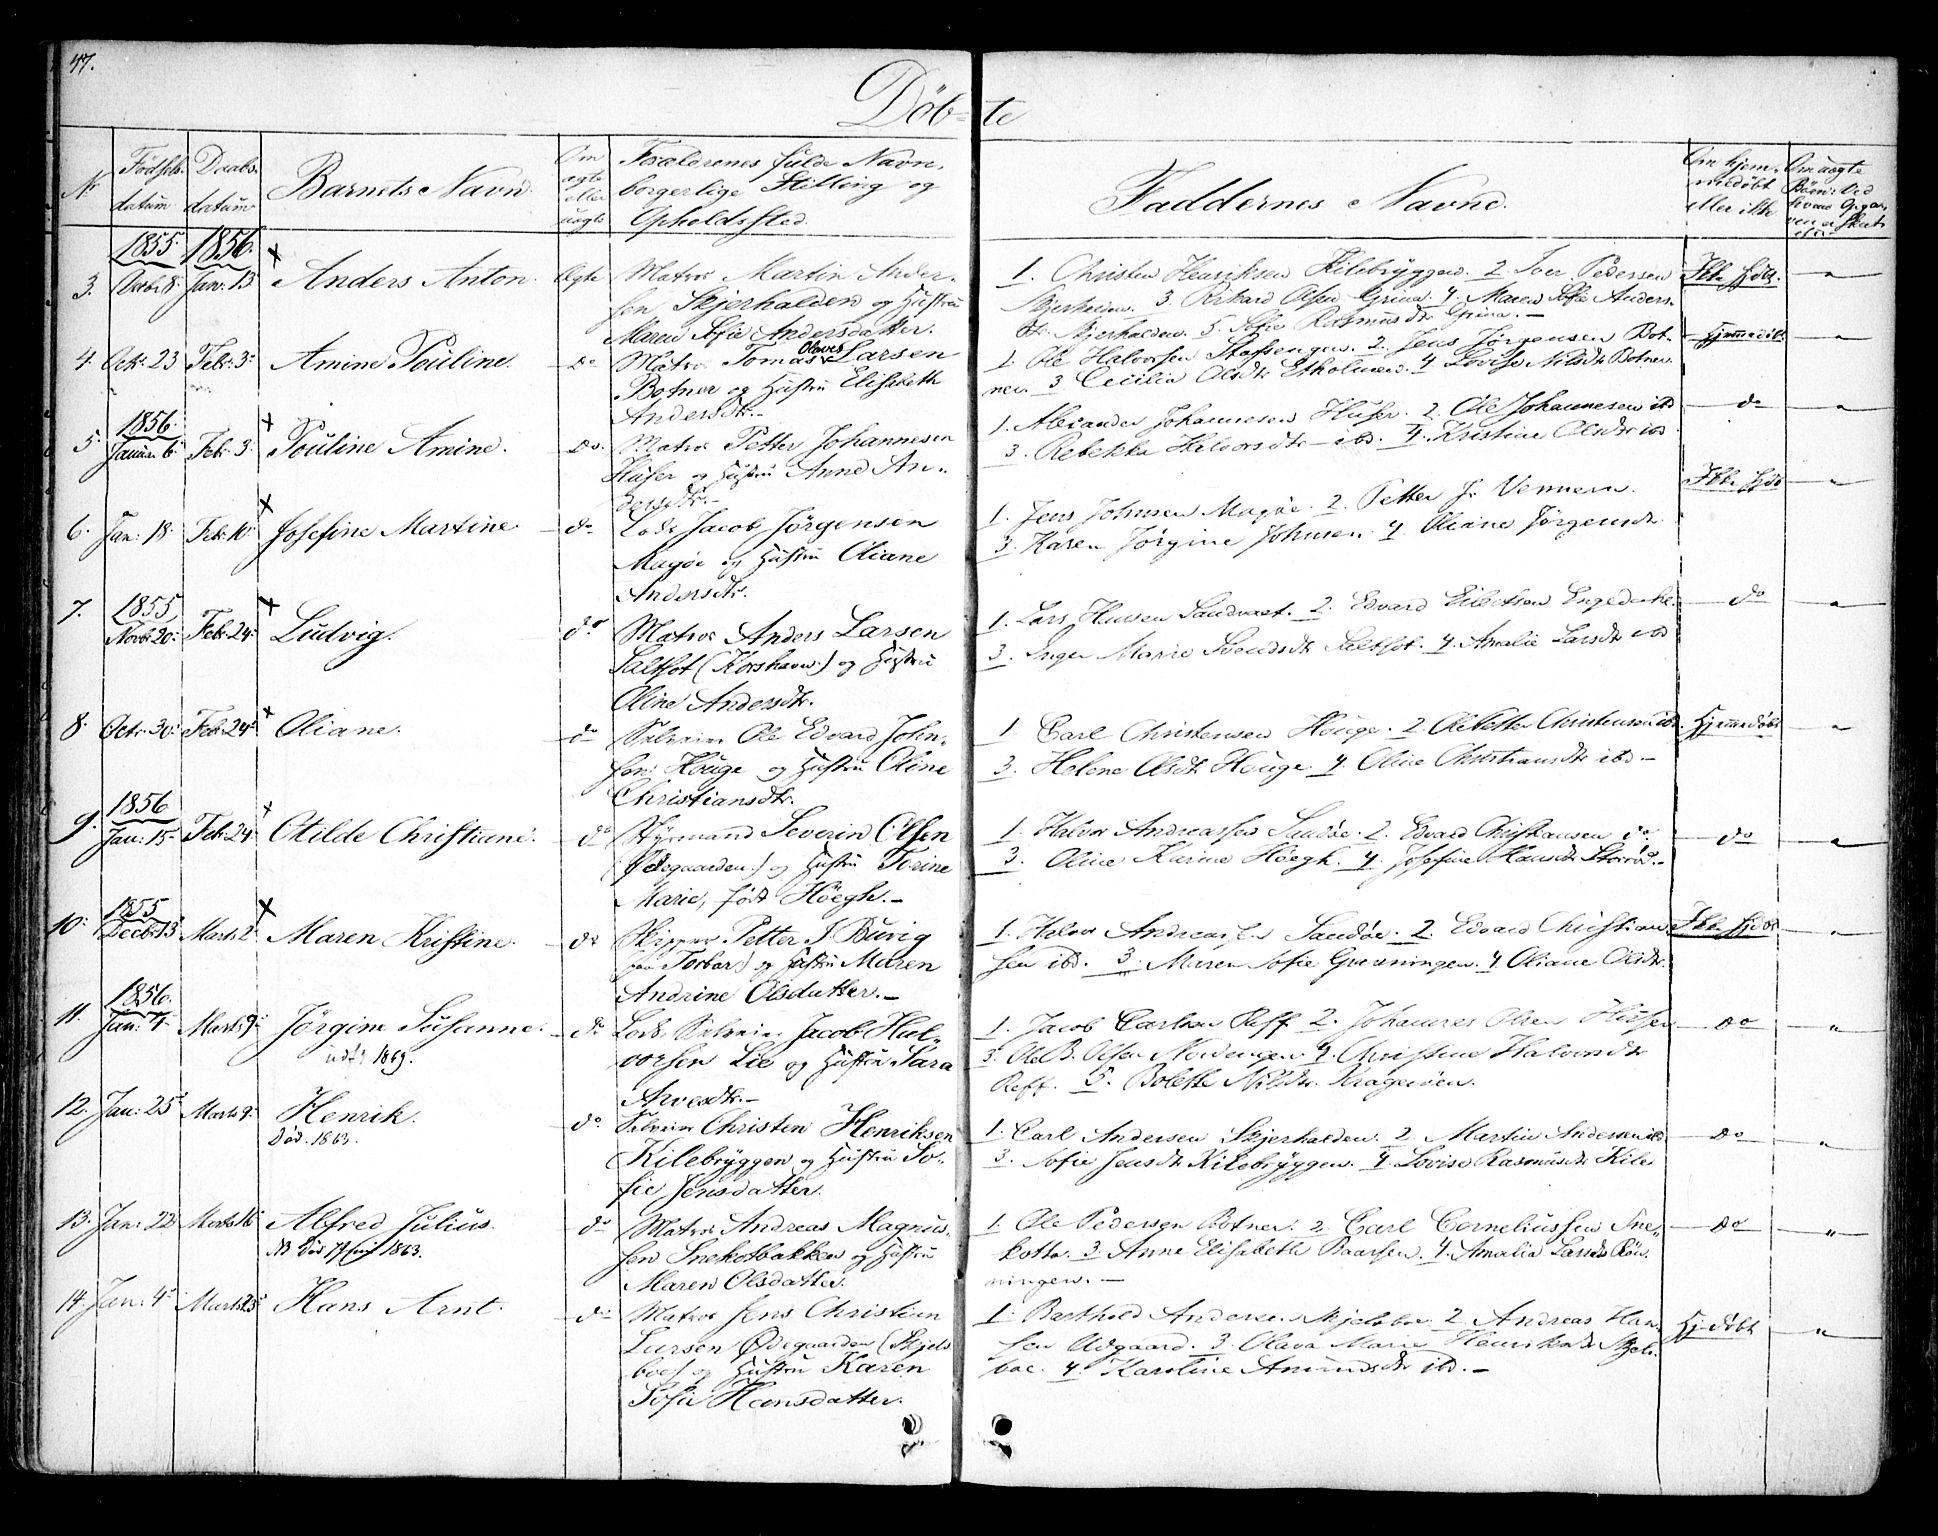 47.
Døbte
Nr
Fødsels-
datum
Daabs-
datum
Barnets Navn.
Om
ægte
eller
uægte
Forældrenes fulde Navn,
borgerlige Stilling og
Opholdssted.
Faddernes Navne.
Om hjem-
medøbt
eller ikke
Om uægte
Børn: Ved
hvem Opgav-
1855. 1856.
3. Jan: 13 Anders Anton. Ægte Matros Martin Ander-
sen Skjerhalden og Hustru
Maren Sofie Andersdatter.
1. Christen Henriksen Kilebryggen. 2. Iver Pedersen
Skjerhalden. 3. Rikard Olsen Grina. 4. Maren Sofie Anders-
dtr. Skjerhalden. 5. Sofie Rasmusdtr Grina. -
4. Oct: 23 Feb: 3 Amine Pouline. do Matros Tomas Olaves Larsen
Botner og Hustru Elisabeth
Andersdtr. -
1. Ole Halvorsen Stafsengen. 2. Jens Jørgensen Bot-
ner. 3 Cecilia Olsdtr Etholmen. 4 Lovise Nilsdtr Botner.
Hjemmedøbt.
1856.
5. Januar 6. Feb: 3 Pouline Amine. do. Matros Petter Johannesen
Huser og Hustru Anne An-
dersdtr. -
1. Alexander Johannesen Huser. 2. Ole Johannesen ibd
3. Rebekka Halvorsdtr - ibd. 4. Kristine Olsdtr ibd
do
6. Jan: 18. Feb: 10. Josefine Martine. do Lods Jacob Jørgensen
Magøe og Hustru Oliane
Andersdtr.
1. Jens Johnsen Magøe. 2. Petter J. Vennern.
3. Karen Jørgine Johnsen. 4. Oliane Jørgensdtr.
7. 1855.
Novb: 20. Feb: 24. Ludvig. do Matros Anders Larsen
Saltsot (Korshavn) og Hustru
Oline Andersdtr.
1. Lars Hansen Sandvaet. 2. Edvard
3. Inger Marie Svendsdtr Saltsot. 4. Amalie Larsdtr ibd
do
8. Octr: 30. Feb: 24. Oliane. do Selveier Ole Edvard John-
sen: Houge og Hustru Oline
Christiansdtr.
1 Carl Christensen Houge. 2 Ole Petter Christensen ibd.
3. Helene Olsdtr Houge. 4. Oline Christiansdtr ibd -
Hjemmedøbt
1856
9. Jan: 15- Feb: 24. Otilde Christiane. do Styrmand Severin Olsen
(Ødegaarden) og Hustru Torine
Marie, født Høegh. -
1. Halvor Andreassen Sandøe. 2. Edvard Christiansen do.
3. Oline Karine Høegh. 4. Josefine Hansdtr Storrød. -
do
1855
10. Decb: 13 Marts 2. Maren Kristine. do Skipper Petter J. Buvig
Torbar) og Hustru Maren
Andrine Olsdatter. -
1. Halvor Andreassen Sandøe. 2. Edvard Christian-
sen ibd. 3. Maren Sofie Grønningen. 4 Oliane Olsdtr.
1856.
11. Jan: 4- Marts 9. Jørgine Susanne. do Lods, Selveier Jacob Hal-
1869.
vorsen Lie og Hustru Sara
Arvesdtr. -
1. Jacob Carlsen Reff 2. Johannes Olsen Huser
3. Ole B. Olsen Nordengen. 4. Christine Halvorsdtr
Reff. 5. Bolette Nilsdtr. Kragerøen.
do
12. Jan: 25. Marts 9. Henrik. do. Selveier Christen Henriksen
Død. 1863.
Kilebryggen og Hustru So-
fie Jensdatter.
1. Carl Andersen Skjerhalden. 2 Martin Andersen ibd
3. Sofie Jensdtr Kilebryggen. 4 Lovise Rasmusdtr Kile
do
13. Jan: 22 Marts 16 Alfred Julius. do Matros Andreas Magnus-
1863.
sen Snekotbakken og Hustru
Maren Olsdatter.
1. Ole Pedersen Botner. 2 Carl Corneliussen Sne-
kotta. 3 Anne Elisabeth Baarsen. 4. Amalia Larsdtr Røn-
ningen. -
do
14. Jan: 4. Marts 23. Hans Arnt. do Matros Jens Christian
Larsen Ødegaarden (Skjels-
boe) og Hustru Karen
Sofie Hansdatter.
1. Barthold Andersen Skjelsboe. 2 Andreas Han-
sen Udgaard. 3. Olava Marie Henriksdtr Skjels-
boe. 4. Karoline Amundsdtr ibd. -
Hj:døbt